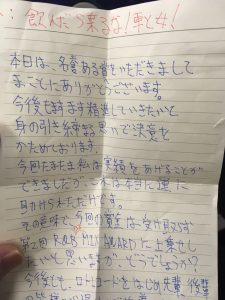 飲んだら乗るな!車と女!
本日は、名誉ある賞をいただきまして
まことにありがとうございます。
今後もますます精進していきたいと
身の引き締まる思いで決意を
かためております。
今回たまたま私は実績をあげることが
できましたが、これは本当に運に
助けられただけです。
その意味で、今回の賞金は受け取らず
第2回 R&B MIX AWARDに上乗せし
たいと思いますが、どうでしょうか?
今後とも、ロトレコードをはじめ先輩、後輩